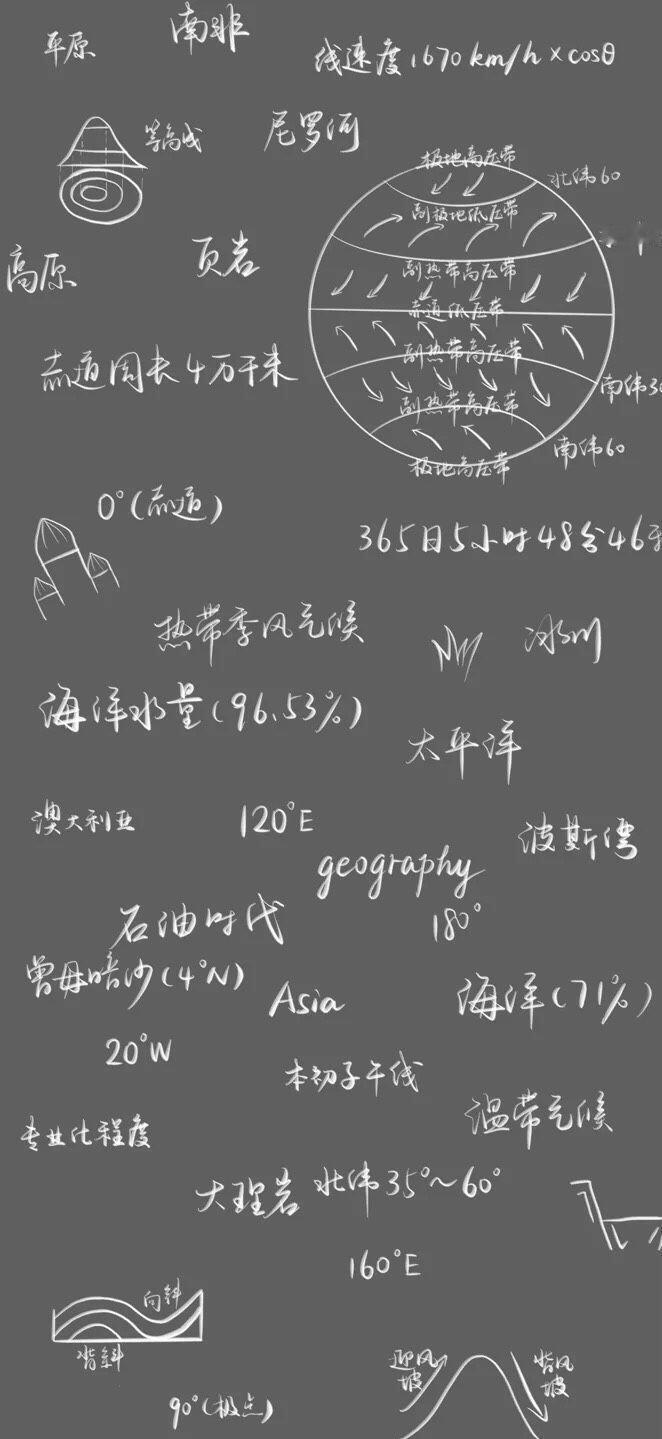 南非
平原
线速度1670km/h×cosθ
等高线
尼罗河
极地高压带
北纬60
副极地低压带
页岩
高原
副热带高压带
赤道低压带
副热带高压带
赤道周长4万千米
南纬30
副热带高压带
南纬60
极地高压带
0°(赤道)
365日5小时48分46秒
热带季风气候
冰川
海洋水量(96.53%)
太平洋
澳大利亚
120°E
波斯湾
geography
石油时代
180°
曾母暗沙(4°N)
Asia
海洋(71%)
20°W
本初子午线
温带气候
专业化程度
大理岩
北纬35°~60°
160°E
向斜
背斜
迎风坡
背风坡
90°(极点)